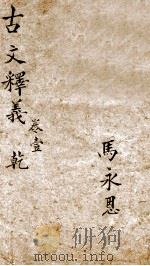 古文釋義
卷壹
乾
馬永恩
mtoou.info